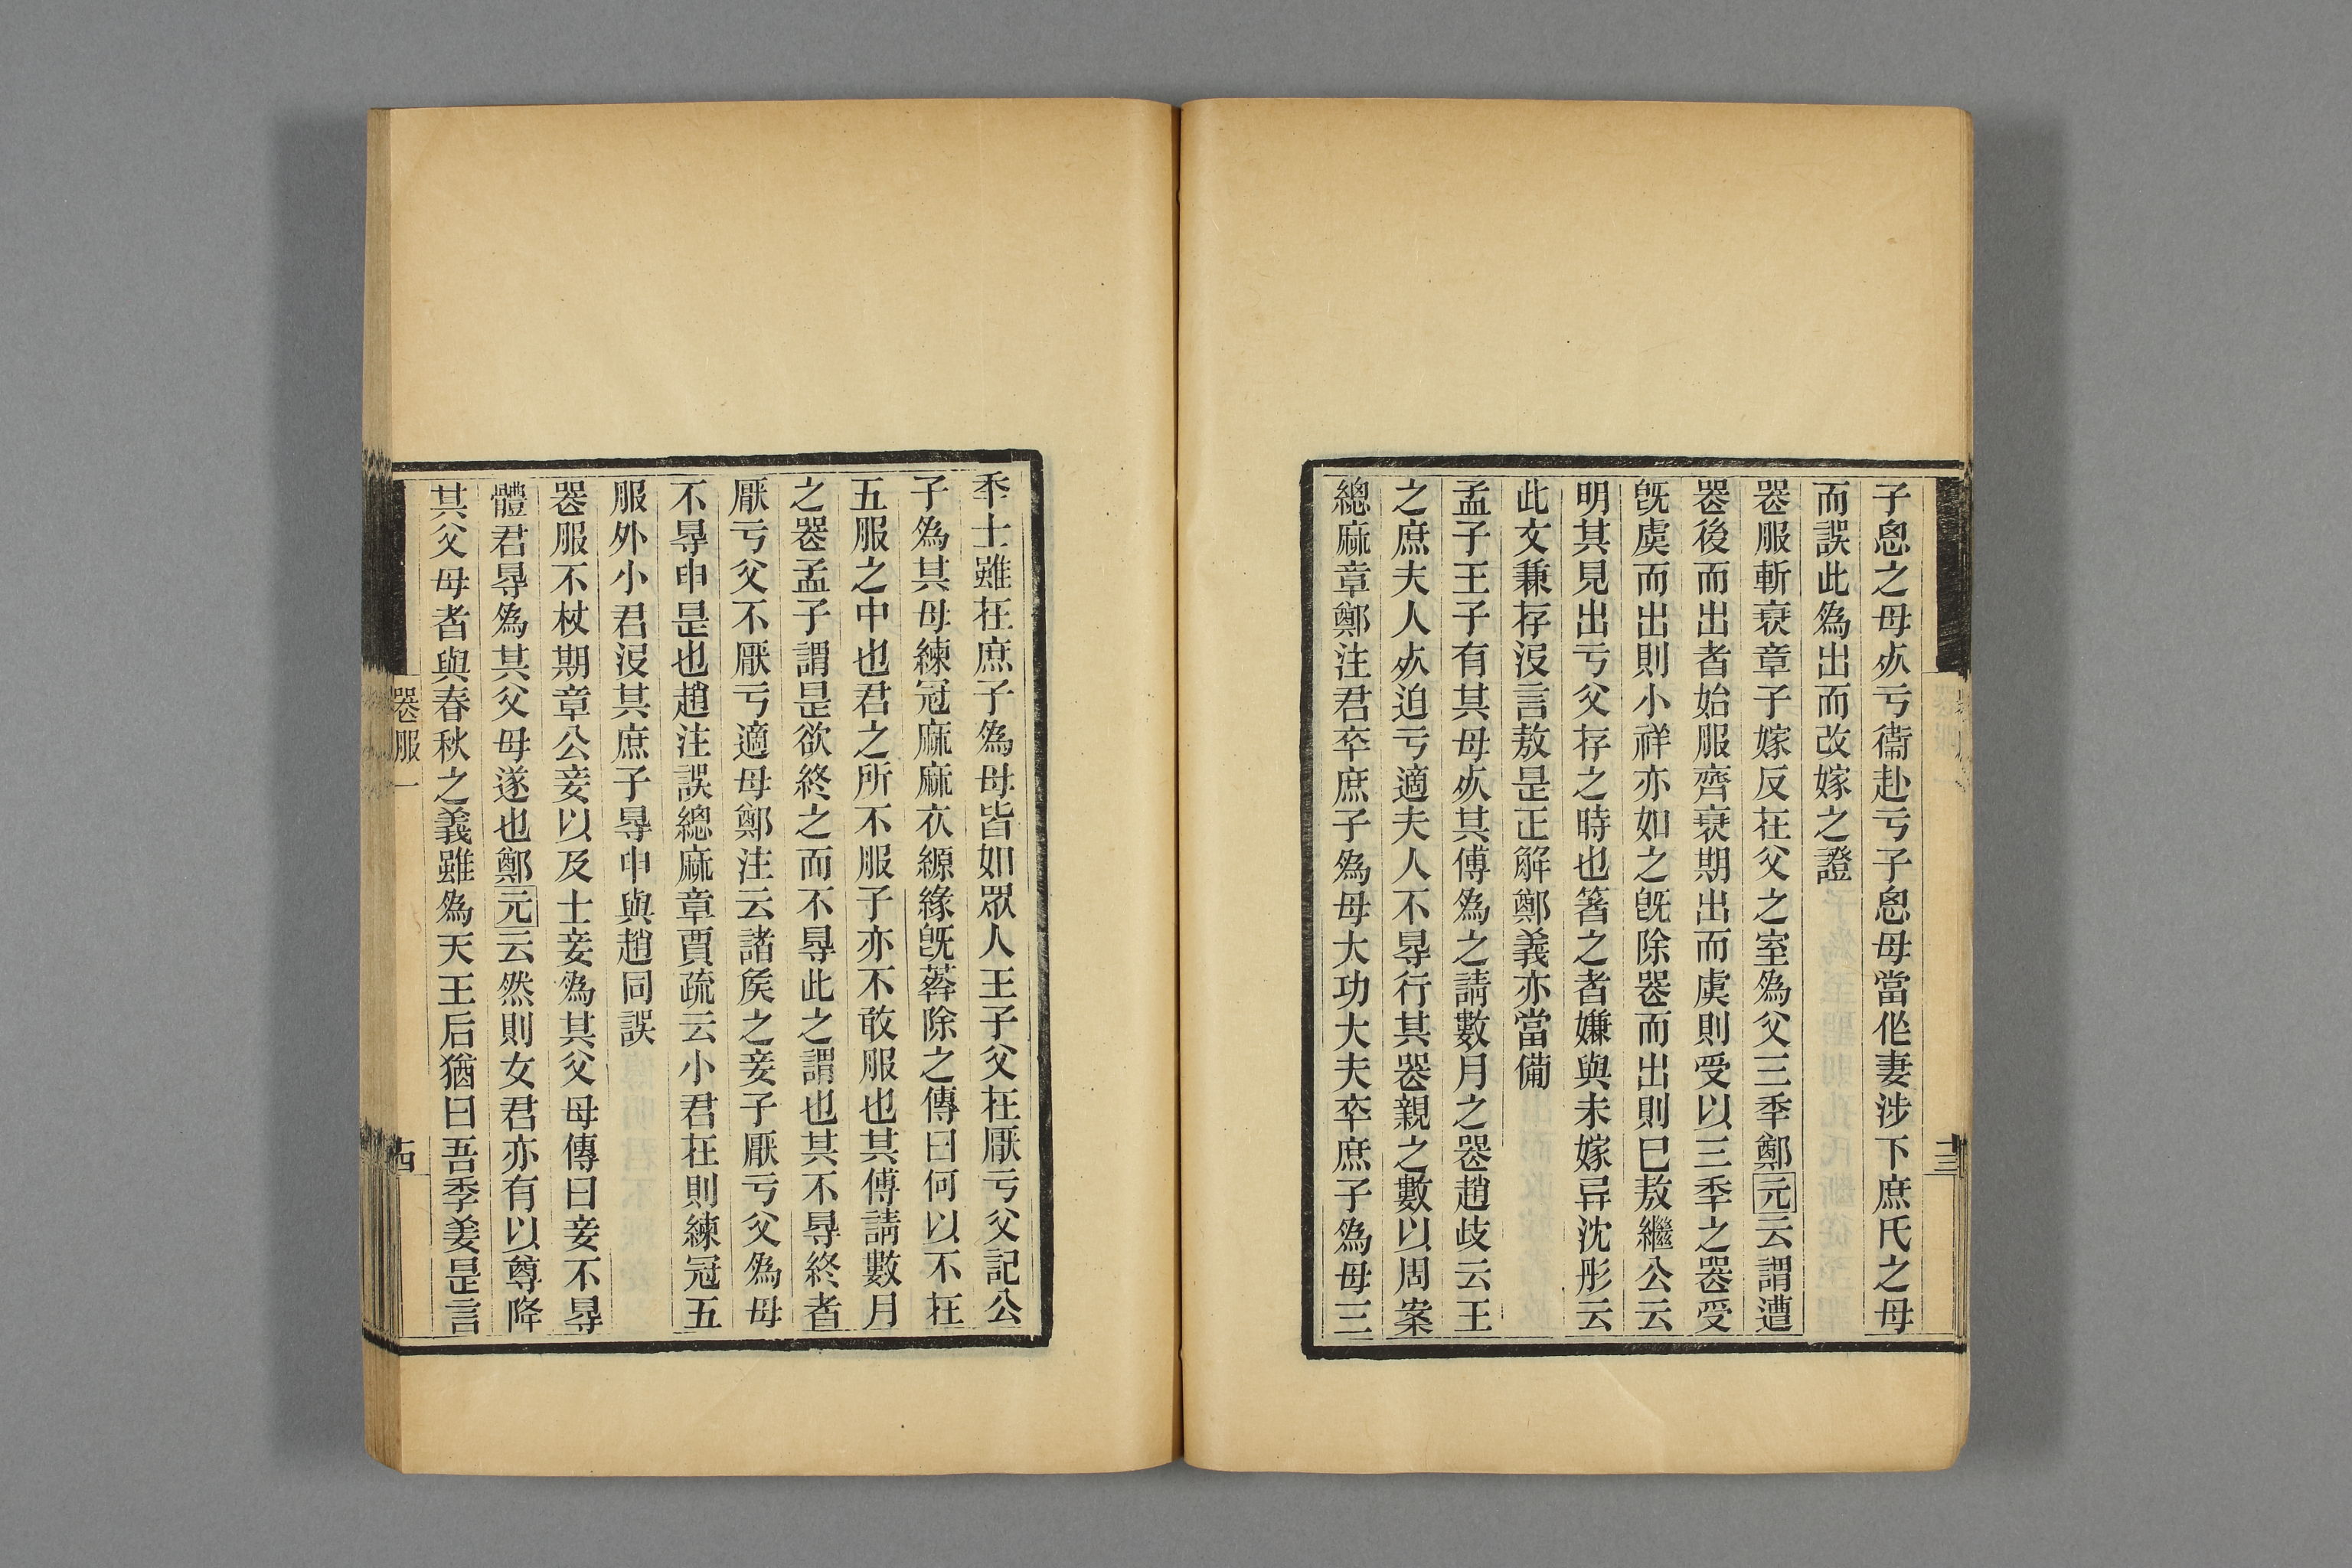 子恖之母𣦸亏衞赴亏子恖母當仫妻涉下庶氏之母
而誤此爲出而改嫁之證
𠷔服斬衰章子嫁反在父之室爲父三秊鄭元云謂遭
𠷔後而出者始服齊衰期出而虞則受以三秊之𠷔受
旣虞而出則小祥亦如之旣除𠷔而出則已敖繼公云
明其見出亏父存之時也箸之者嫌與未嫁异沈彤云
此文兼存沒言敖是正解鄭義亦當備
孟子王子有其母𣦸其傅爲之請數月之𠷔趙歧云王
之庶夫人𣦸迫亏適夫人不㝵行其𠷔親之數以周案
緦麻章鄭注君卒庶子爲母大功大夫卒庶子爲母三
秊士雖在庶子爲母皆如眾人王子父在厭亏父記公
子爲其母練冠麻麻衣縓緣旣葬除之傳曰何以不在
五服之中也君之所不服子亦不敢服也其傅請數月
之𠷔孟子謂是欲終之而不㝵此之謂也其不㝵終者
厭亏父不厭亏適母鄭注云諸侯之妾子厭亏父爲母
不㝵申是也趙注誤緦麻章賈疏云小君在則練冠五
服外小君沒其庶子㝵申與趙同誤
𠷔服不杖期章公妾以及士妾爲其父母傳曰妾不㝵
體君㝵爲其父母遂也鄭元云然則女君亦有以尊降
其父母者與春秋之義雖爲天王后猶曰吾季姜是言
𠷔服一
十四
十三